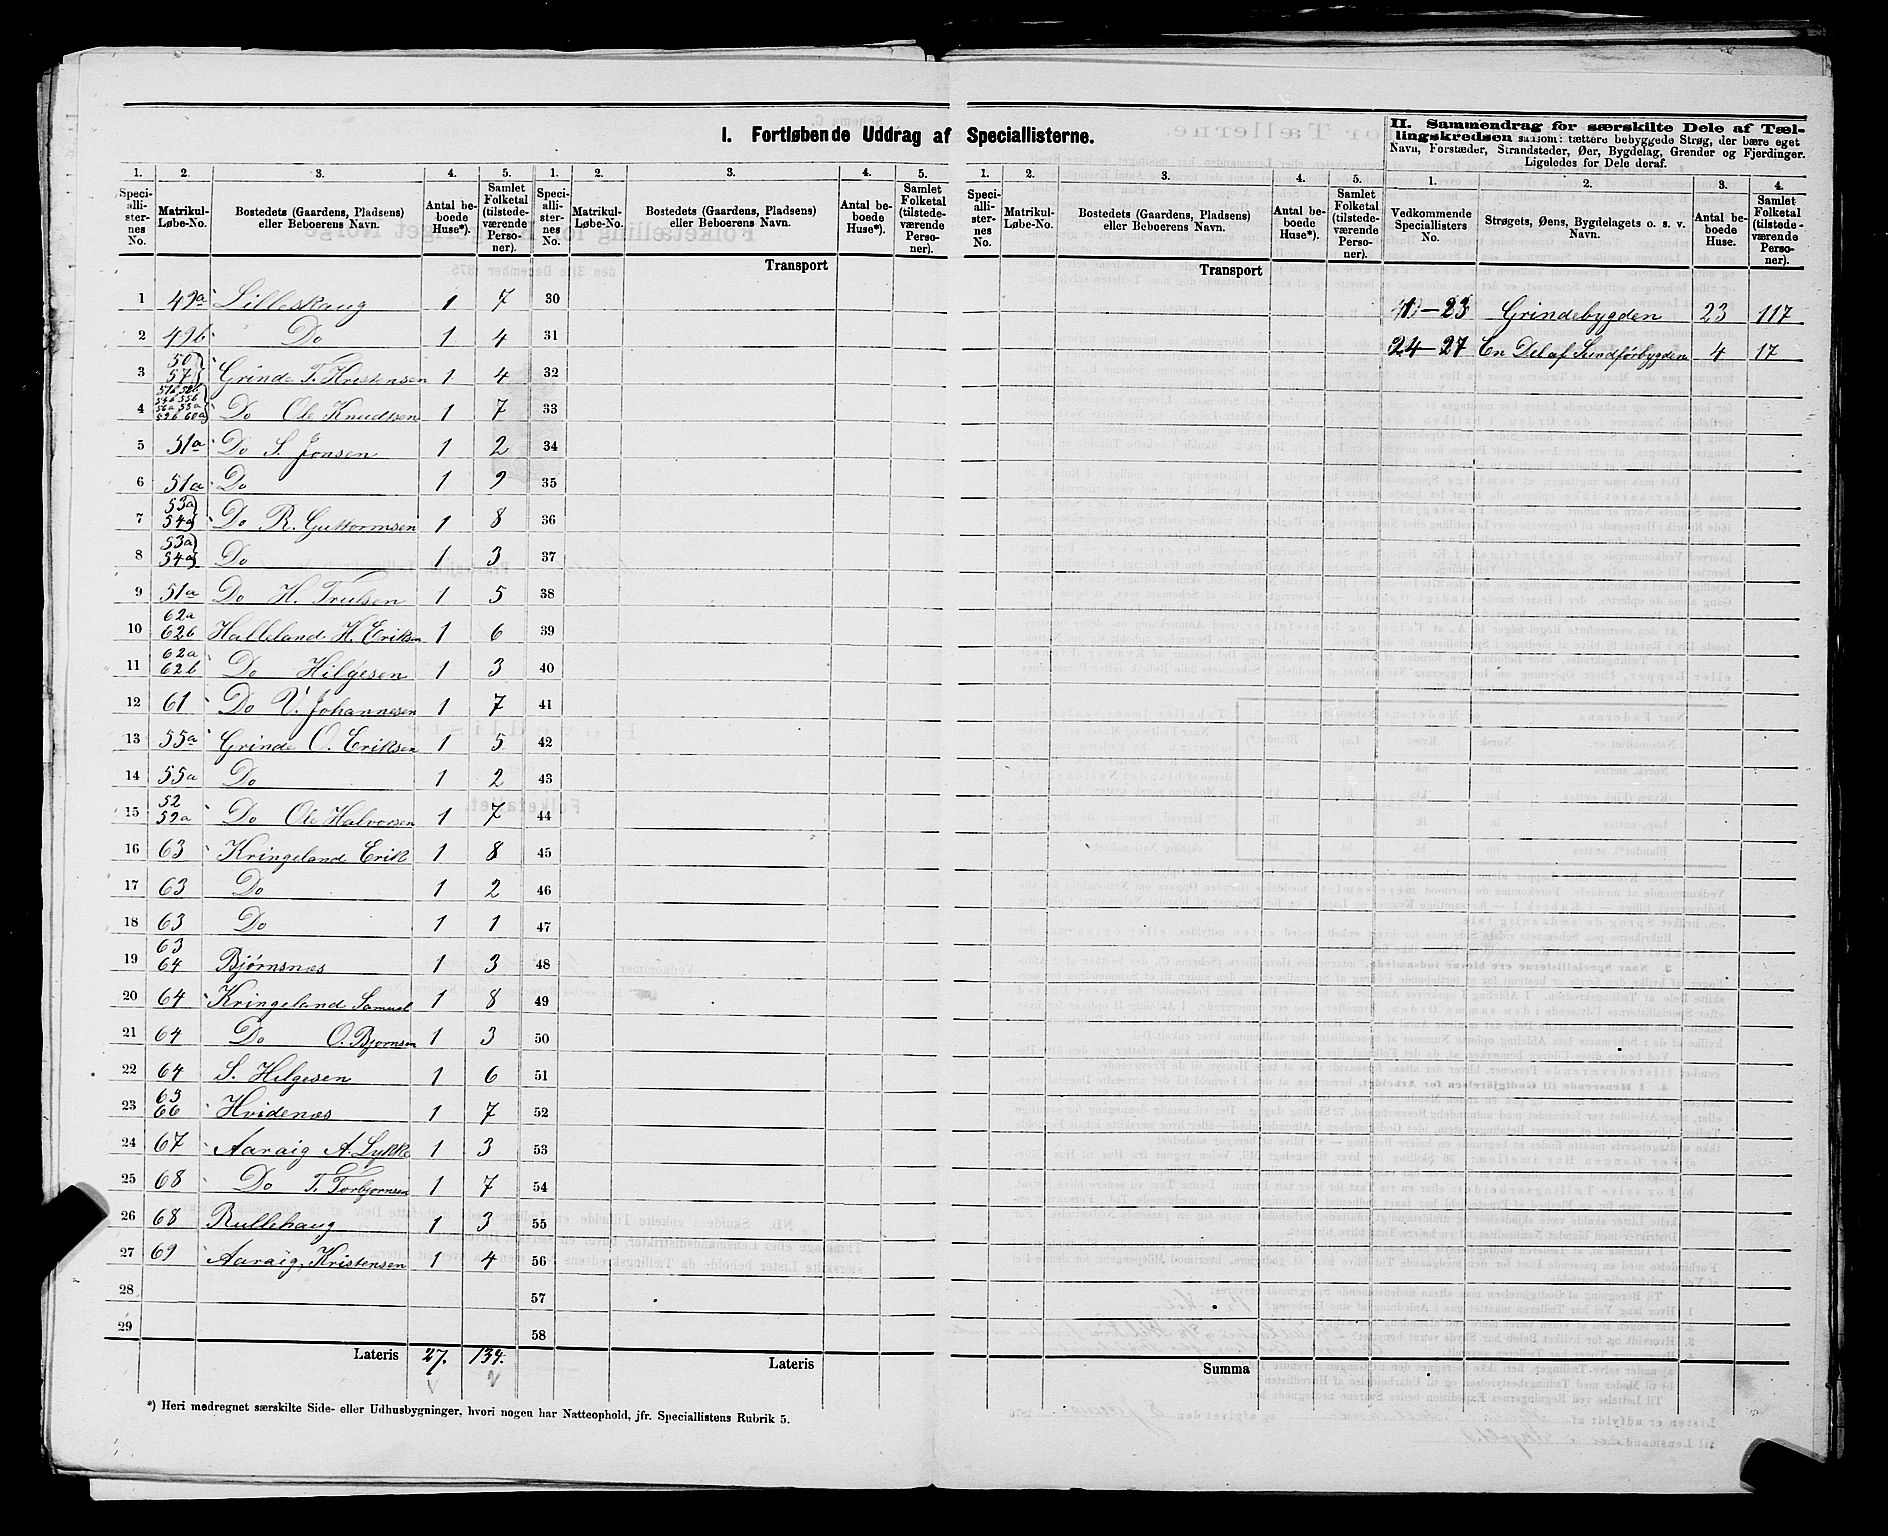 I. Fortløbende Uddrag af Speciallisterne.
II. Sammendrag for særskilte Dele af Tæl-
lingskredsen saasom: tættere bebyggede Strøg, der bære eget
Navn, Forstæder, Strandsteder, Øer, Bygdelag, Grender og Fjerdinger.
Ligeledes for Dele deraf.
1. 2. 3. 4. 5. 1. 2. 3. 4. 5. 1. 2. 3. 4. 5. 1. 2. 3. 4.
Speciallisternes No. Matrikul-Løbe-No. Bostedets (Gaardens, Pladsens) eller Beboerens Navn. Antal beboede Huse*). Samlet Folketal (tilstedeværende Personer).
Speciallisternes No. Matrikul-Løbe-No. Bostedets (Gaardens, Pladsens) eller Beboerens Navn. Antal beboede Huse*). Samlet Folketal (tilstedeværende Personer).
Speciallisternes No. Matrikul-Løbe-No. Bostedets (Gaardens, Pladsens) eller Beboerens Navn. Antal beboede Huse*). Samlet Folketal (tilstedeværende Personer).
Vedkommende Speciallisters No. Strøgets, Øens, Bygdelagets o. s. v. Navn. Antal beboede Huse. Samlet Folketal (tilstedeværende Personer).
Transport Transport
1 49a Lilleskaug 1 7 30
2 49b Do 1 4 31
3 50 57 Grinde T. Kristensen 1 4 32
4 Do Ole Knudtsen 1 7 33
5 51a Do S. Jonsen 1 2 34
6 51a Do 1 9 35
7 53a 54a Do R. Guttormsen 1 8 36
8 53a 54a Do 1 3 37
9 51a Do H. Trulsen 1 5 38
10 62a 62b Halleland H. Eriksen 1 6 39
11 62a 62b Do Hilgesen 1 3 40
12 61 Do V. Johannesen 1 7 41
13 55a Grinde O. Eriksen 1 5 42
14 55a Do 1 2 43
15 52 59a Do Ole Halvorsen 1 7 44
16 63 Kringeland Erik 1 8 45
17 63 Do 1 2 46
18 63 Do 1 1 47
19 63 64 Bjørnsnæs 1 3 48
20 64 Kringeland Samuel 1 8 49
21 64 Do O. Bjørnsen 1 3 50
22 64 S. Hilgesen 1 6 51
23 65 66 Hvidenæs 1 7 52
24 67 Aaraig A. Lykke 1 3 53
25 68 Do T. Torbjørnsen 1 7 54
26 68 Rullehaug 1 3 55
27 69 Aaraig, Kristensen 1 4 56
28 57
29 58
Lateris 27. 134. Lateris Summa
1–23 Grindebygden 23 117
24–27 En Del af Sundførbygden 4 17
*) Heri medregnet særskilte Side- eller Udhusbygninger, hvori nogen har Natteophold, jfr. Speciallistens Rubrik 5.